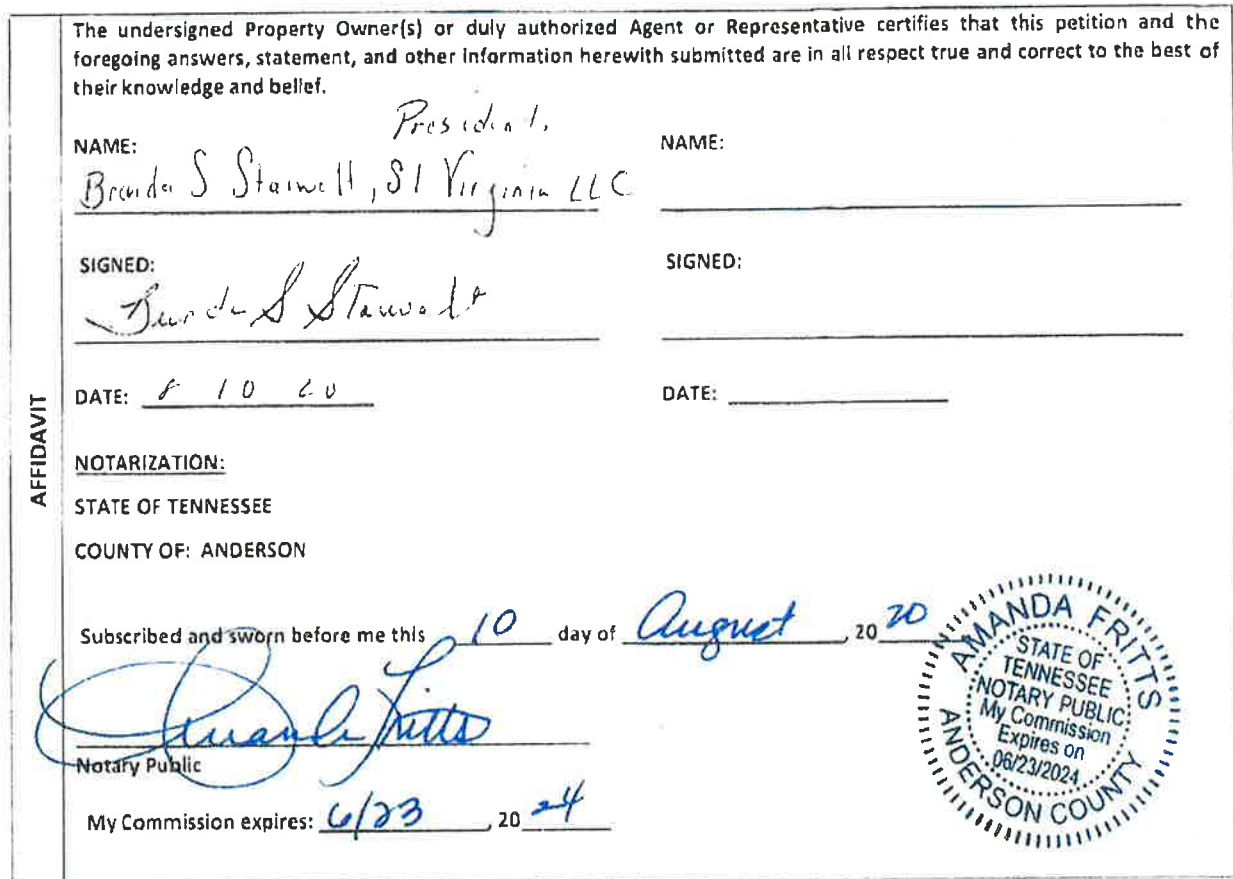 The undersigned Property Owner(s) or duly authorized Agent or Representative certifies that this petition and the
foregoing answers, statement, and other information herewith submitted are in all respect true and correct to the best of
their knowledge and belief.
President,
NAME:
Brenda S Starwalt, S1 Virginia LLC
SIGNED:
Brenda S Starwalt
DATE: 8 10 20
NAME:
SIGNED:
DATE:
AFFIDAVIT
NOTARIZATION:
STATE OF TENNESSEE
COUNTY OF: ANDERSON
Subscribed and sworn before me this 10 day of August, 20 20
Amanda Fritts
Notary Public
My Commission expires: 6/23, 20 24
AMANDA FRITTS
STATE OF
TENNESSEE
NOTARY PUBLIC
My Commission
Expires on
06/23/2024
ANDERSON COUNTY